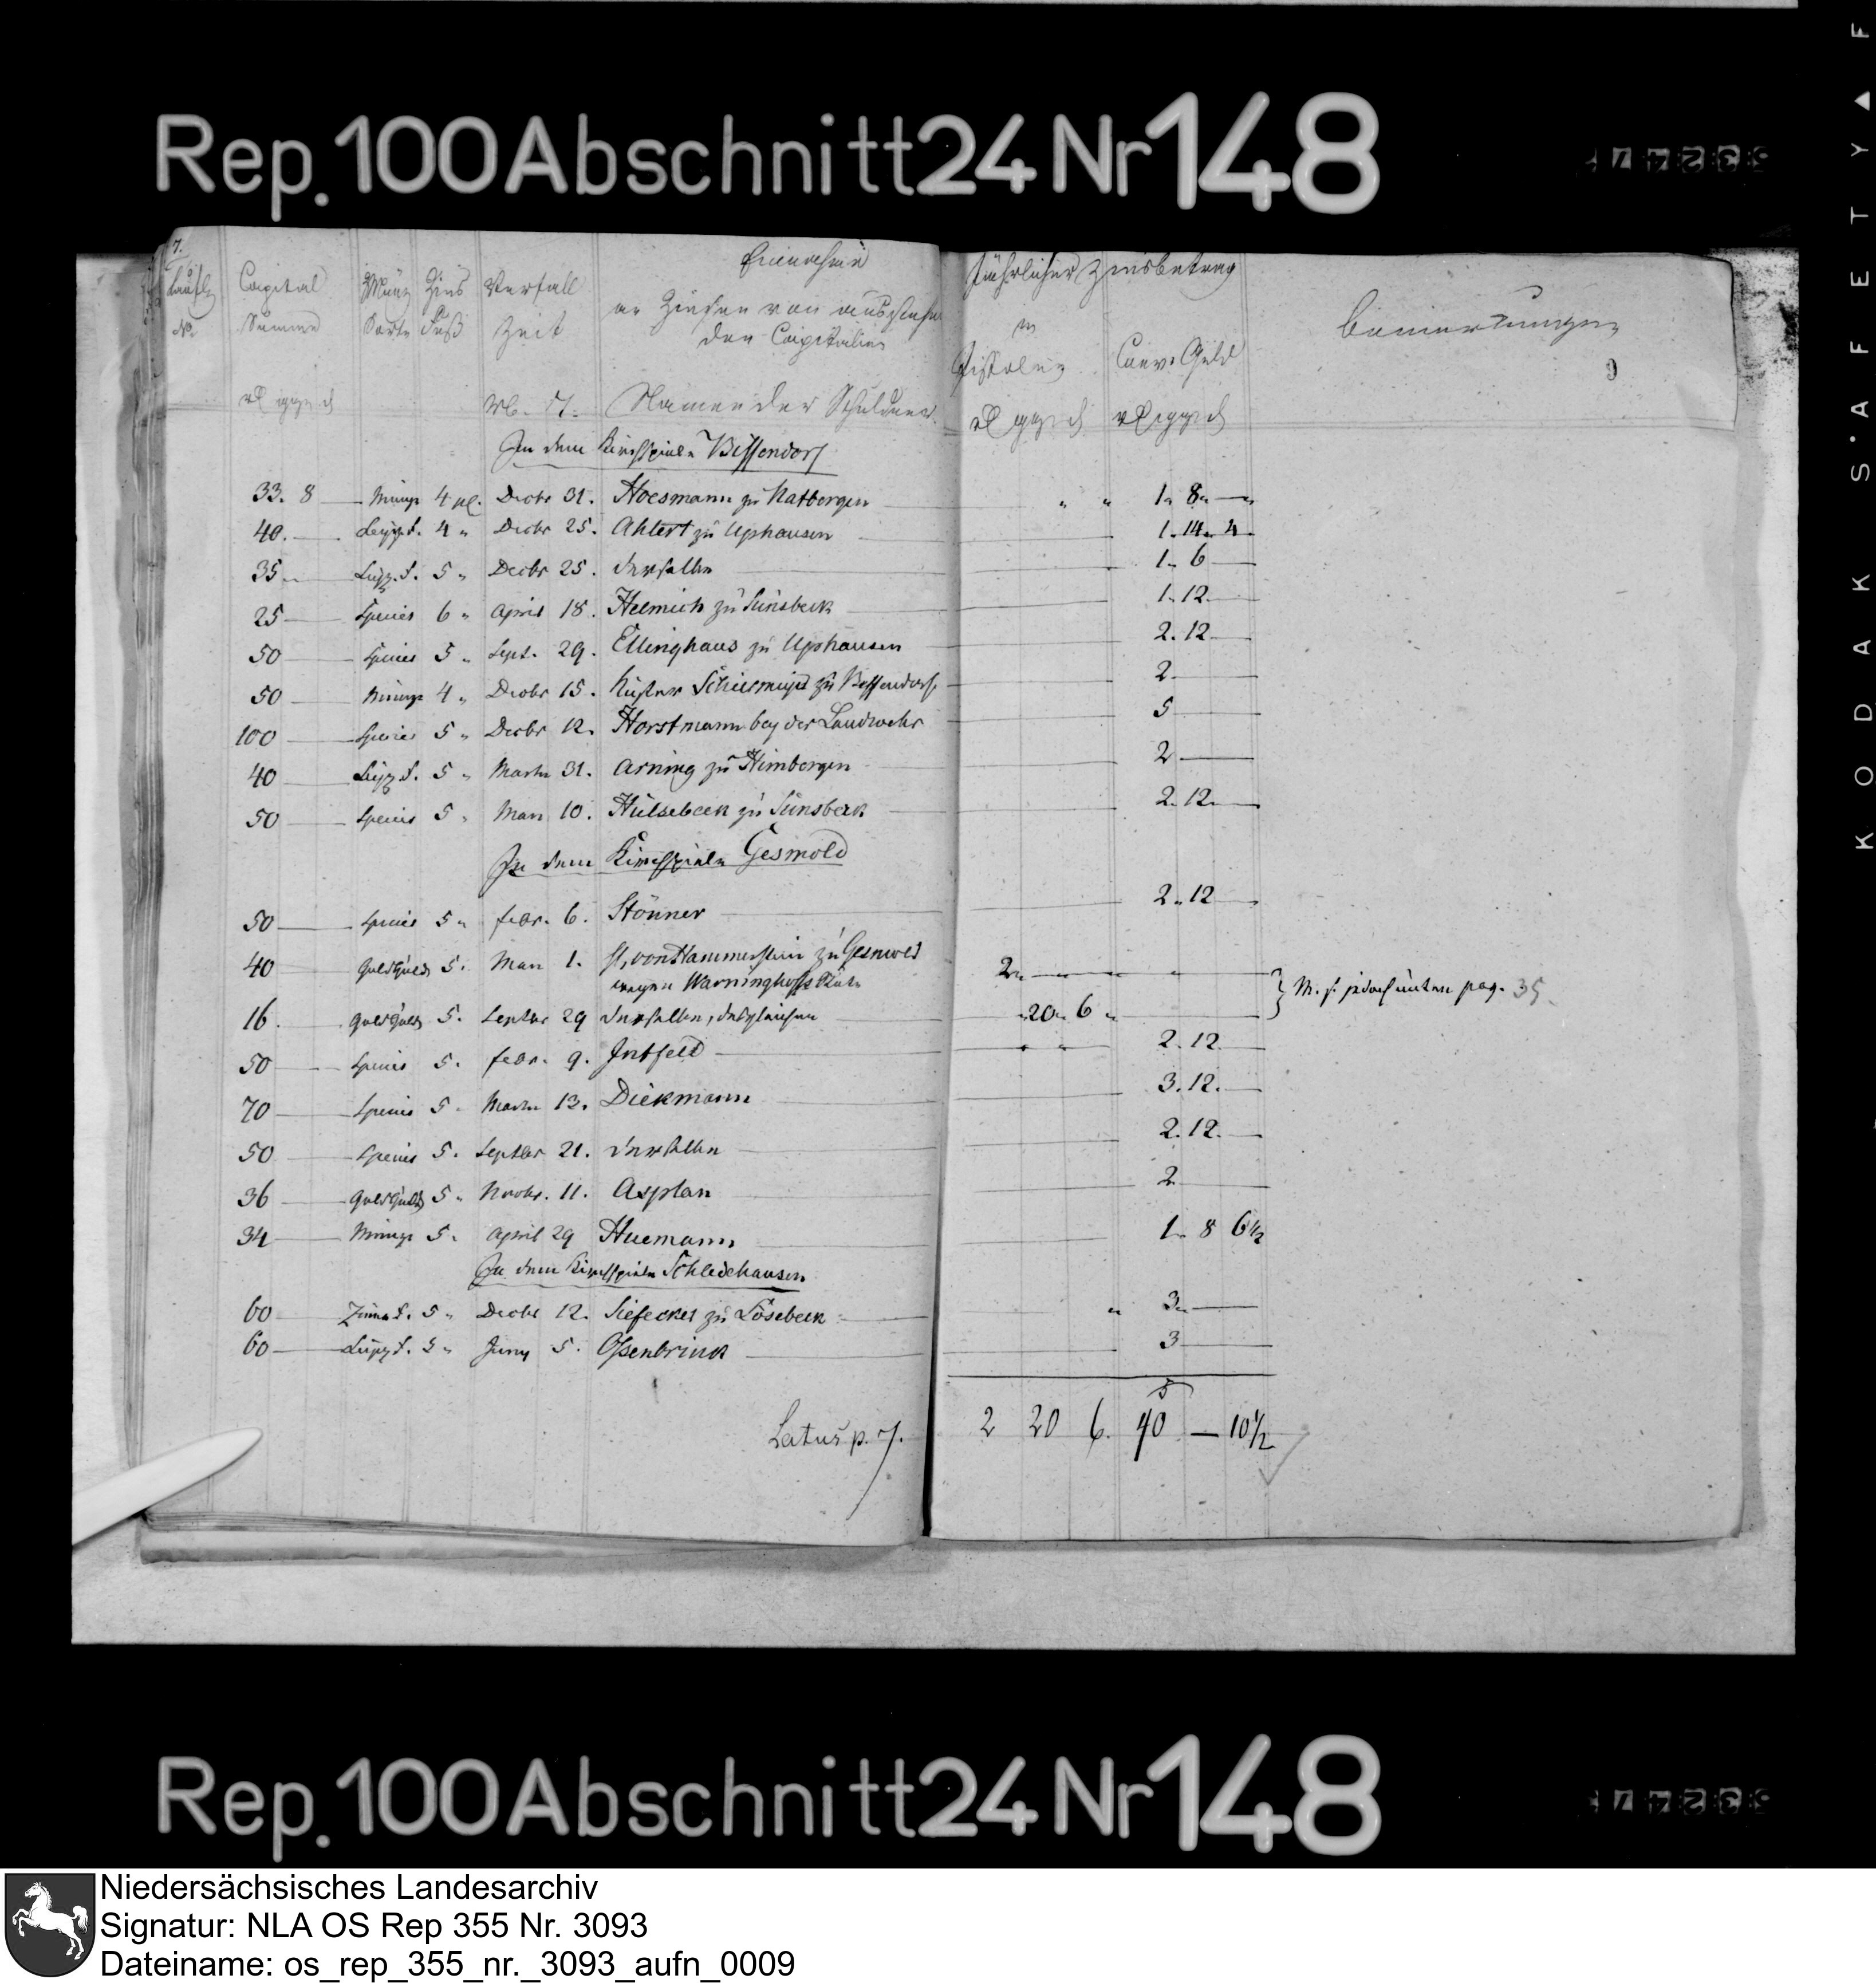 Rep. 100 Abschnitt 24 Nr 148
7.
Laufd
No
Capital
Summe
Münz
Sorte
Zins
Fuß
Verfall
Zeit
Einnahme
an Zinsen von ausstehen
den Capitalien
Jährlicher Zinsbetrag
in
Pistolen
Conv. Geld
Bemerkungen
9
Namen der Schuldner
In dem Kirchspiele Bissendorf
33. 8 — Münze 4 pC. Decbr 31. Hoesmann zu Natbergen — 1. 8. —
40. — 4 " Decbr 25. Ahlert zu Uphausen — 1. 14. 4
35 — 5 " Decbr 25. derselbe — 1. 6 —
25 — Species 6 " April 18. Helmich zu Sünsbeck — 1. 12. —
50 — Species 5 " Sept. 29. Ellinghaus zu Uphausen — 2. 12 —
50 — Münze 4 " Decbr 15. Küster zu Bissendorf — 2. —
100 — Species 5 " Decbr 12. Horstmann bey der Landwehr — 5 —
40 — 5 " Martz 31. Arning zu Himbergen — 2 —
50 — Species 5 " May 10. Hülsebeck zu Sünsbeck — 2. 12. —
In dem Kirchspiele Gesmold
50 — Species 5 " Febr. 6. Stönner — 2. 12 —
40 Goldguld 5. May 1. H. von Hammerstein zu Gesmold 2. —
wegen Warninghofs Stäte
M. s. jedoch unten pag. 35.
16. Goldguld 5. Septbr 29 derselbe, desgleichen 20. 6
50 — Species 5. Febr. 9. Intfeld — 2. 12 —
70 — Species 5. Martz 13. Diekmann — 3. 12. —
50 — Species 5. Septbr 21. derselbe — 2. 12. —
36 — Goldguld 5. Novbr. 11. Asplan — 2 —
34 — Münze 5. April 29 Huemann — 1. 8 6½
In dem Kirchspiele Schledehausen
60 5 " Decbr 12. Siefecker zu Lösebeck — 3. —
60 — 5 " Juny 5. Ossenbrink — 3 —
5
Latus p. 7. 2 20 6. 40 — 10½
Rep. 100 Abschnitt 24 Nr 148
KODAK S'AFETY ▲ F
Niedersächsisches Landesarchiv
Signatur: NLA OS Rep 355 Nr. 3093
Dateiname: os_rep_355_nr._3093_aufn_0009